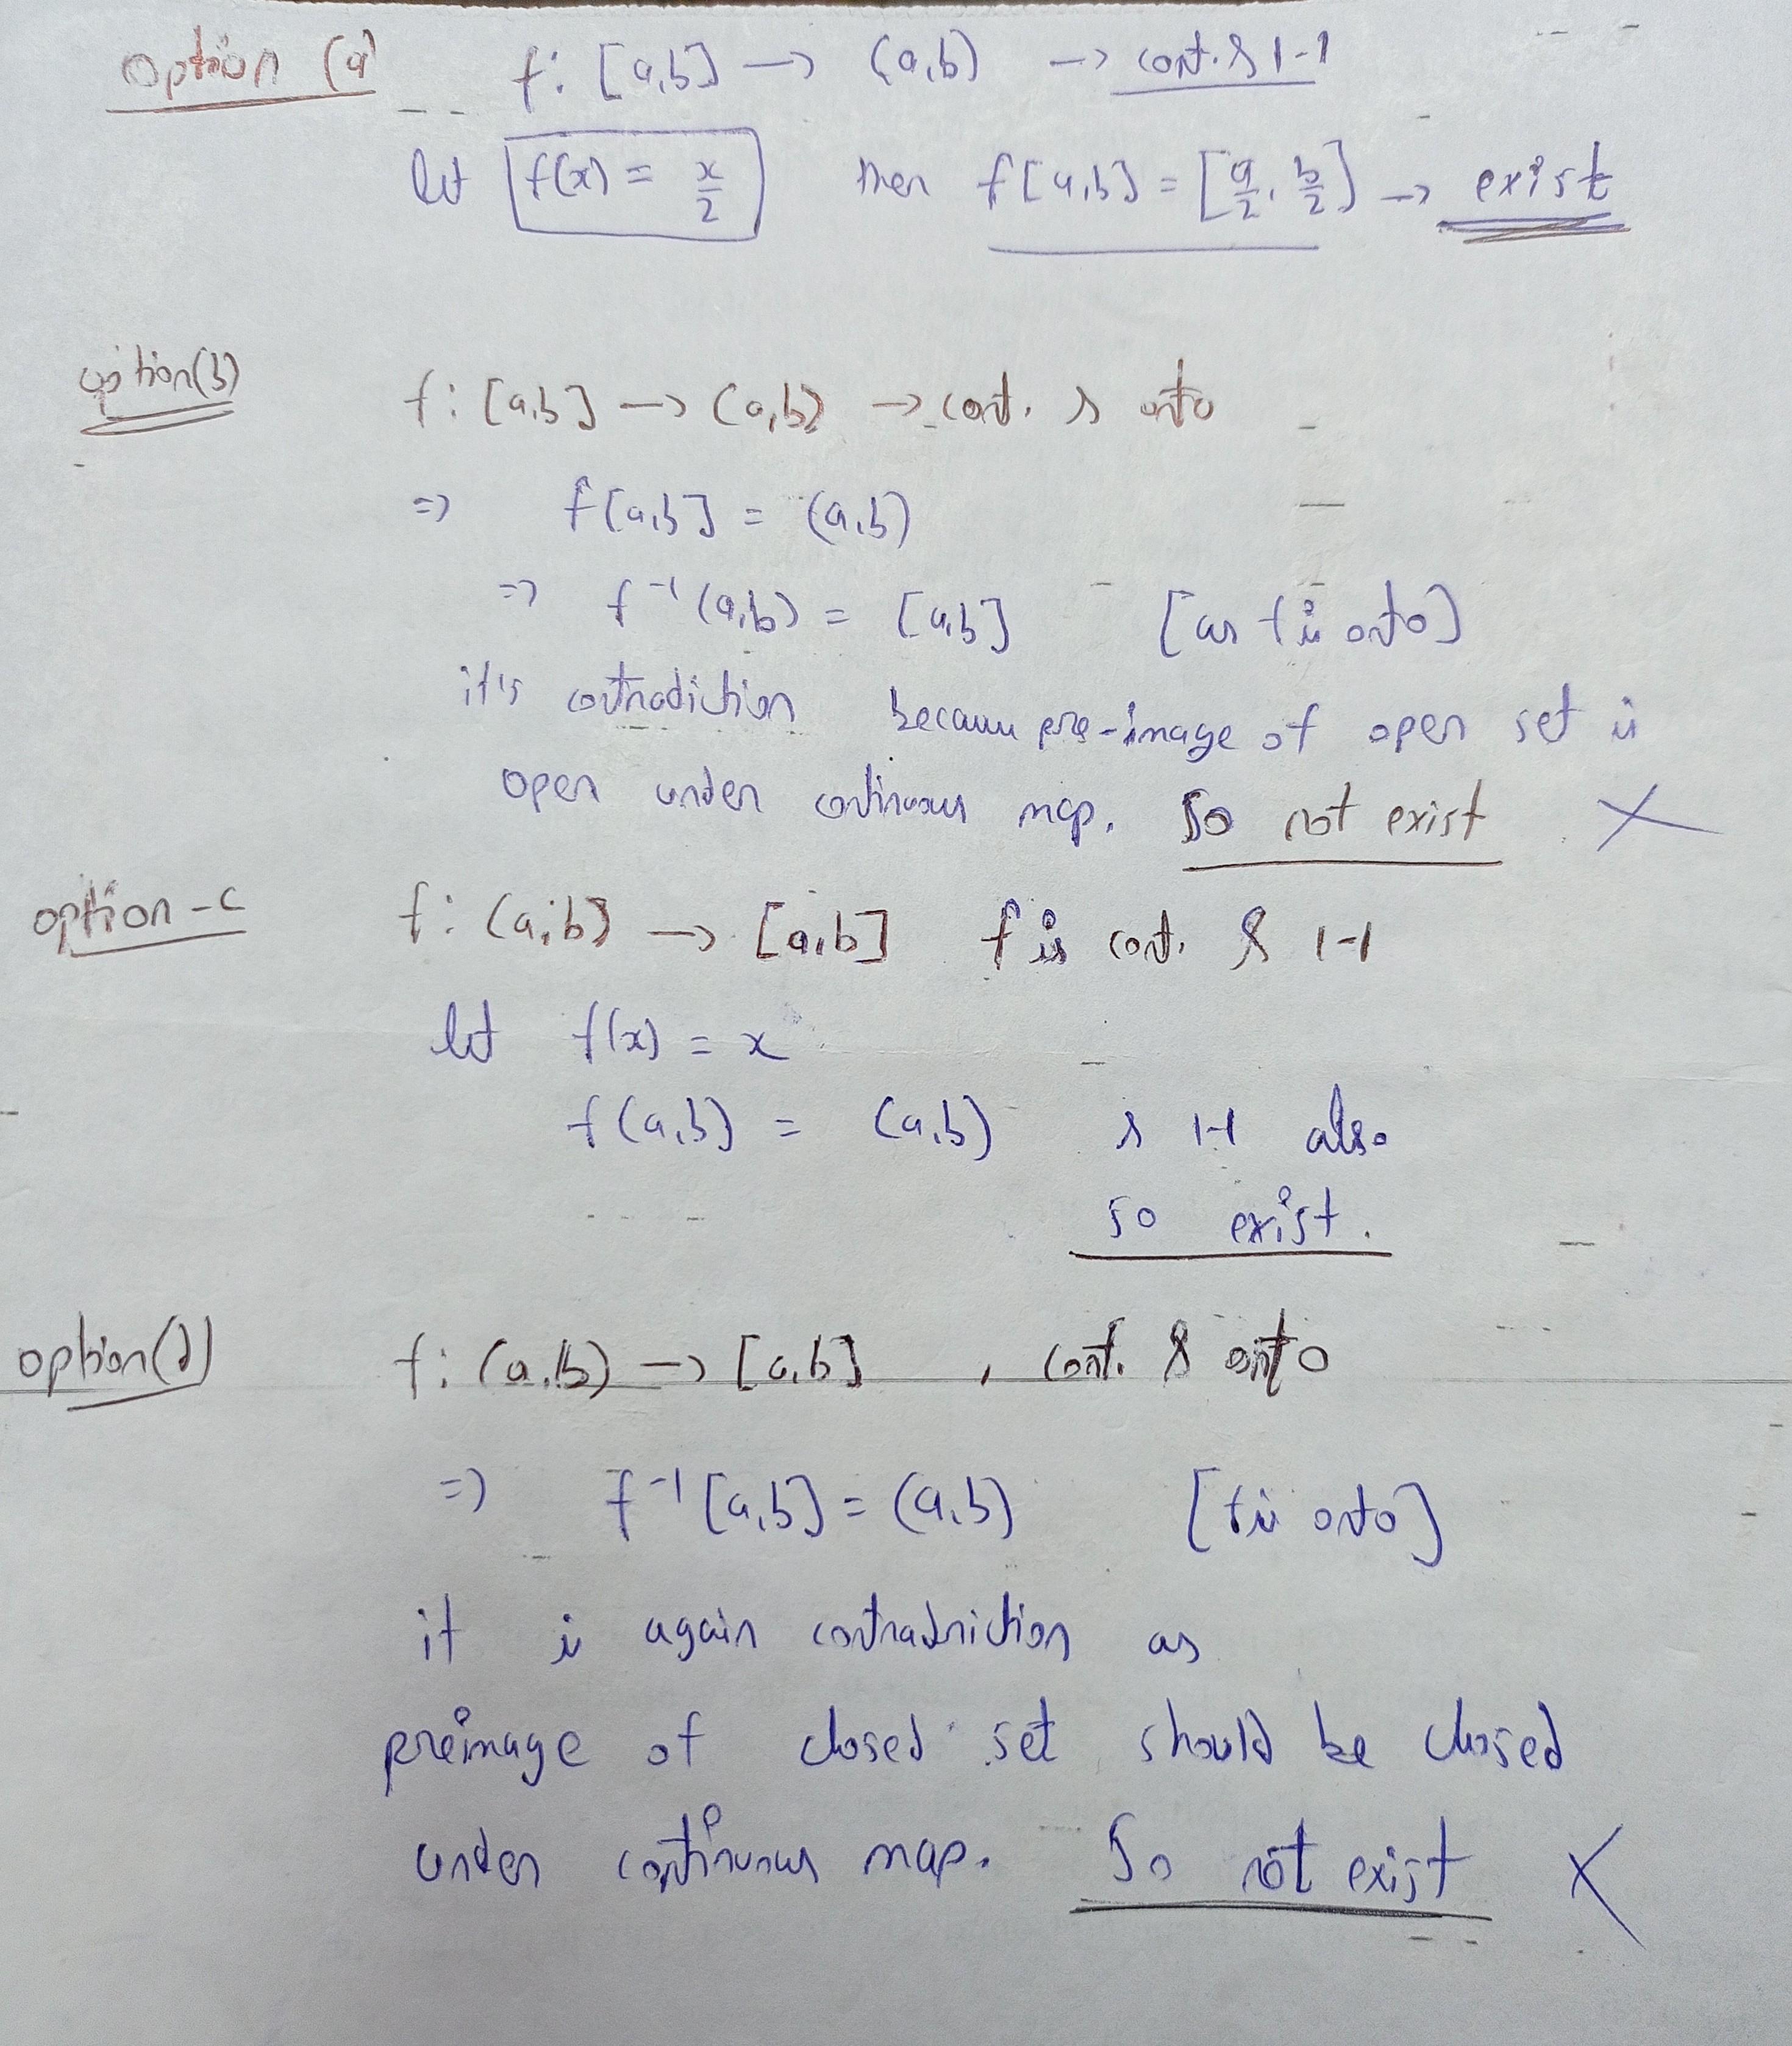 option (a) f: [a,b] → (a,b) → cont. & 1-1
let f(x) = x/2 then f[a,b] = [a/2, b/2] → exist
option(b) f: [a,b] → (a,b) → cont. & onto
=> f[a,b] = (a,b)
=> f⁻¹(a,b) = [a,b] [as f is onto]
it's contradiction because pre-image of open set is
open under continuous map. So not exist ×
option - c f: (a,b) → [a,b] f is cont. & 1-1
let f(x) = x
f(a,b) = (a,b) & 1-1 also
so exist.
option(d) f: (a,b) → [a,b] , cont. & onto
=> f⁻¹[a,b] = (a,b) [f is onto]
it is again contradniction as
preimage of closed set should be closed
under continuous map. So not exist ×